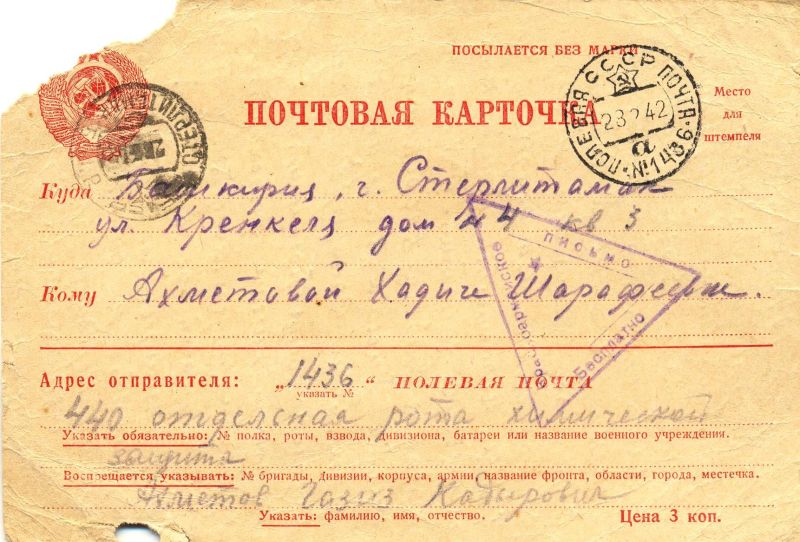 ПОСЫЛАЕТСЯ БЕЗ МАРКИ
ПОЛЕВАЯ СССР ПОЧТА
23 2 42
а
№1436
Место
для
штемпеля
ПОЧТОВАЯ КАРТОЧКА
Куда Башкирия, г. Стерлитамак
ул. Кренкеля дом 44 кв 3
ПИСЬМО
Красноармейское
Бесплатно
Кому Ахметовой Хадиче
Адрес отправителя: „1436“ ПОЛЕВАЯ ПОЧТА
указать №
440 отдельная рота химической
Указать обязательно: № полка, роты, взвода, дивизиона, батареи или название военного учреждения.
защиты
Воспрещается указывать: № бригады, дивизии, корпуса, армии, название фронта, области, города, местечка.
Ахметов Газиз Кадырович
Указать: фамилию, имя, отчество.
Цена 3 коп.